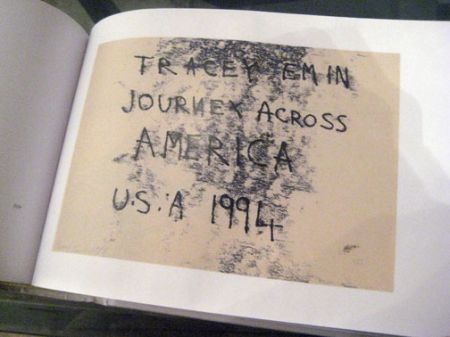 TRACEY EMIN
JOURNEY ACROSS
AMERICA
U.S.A 1994